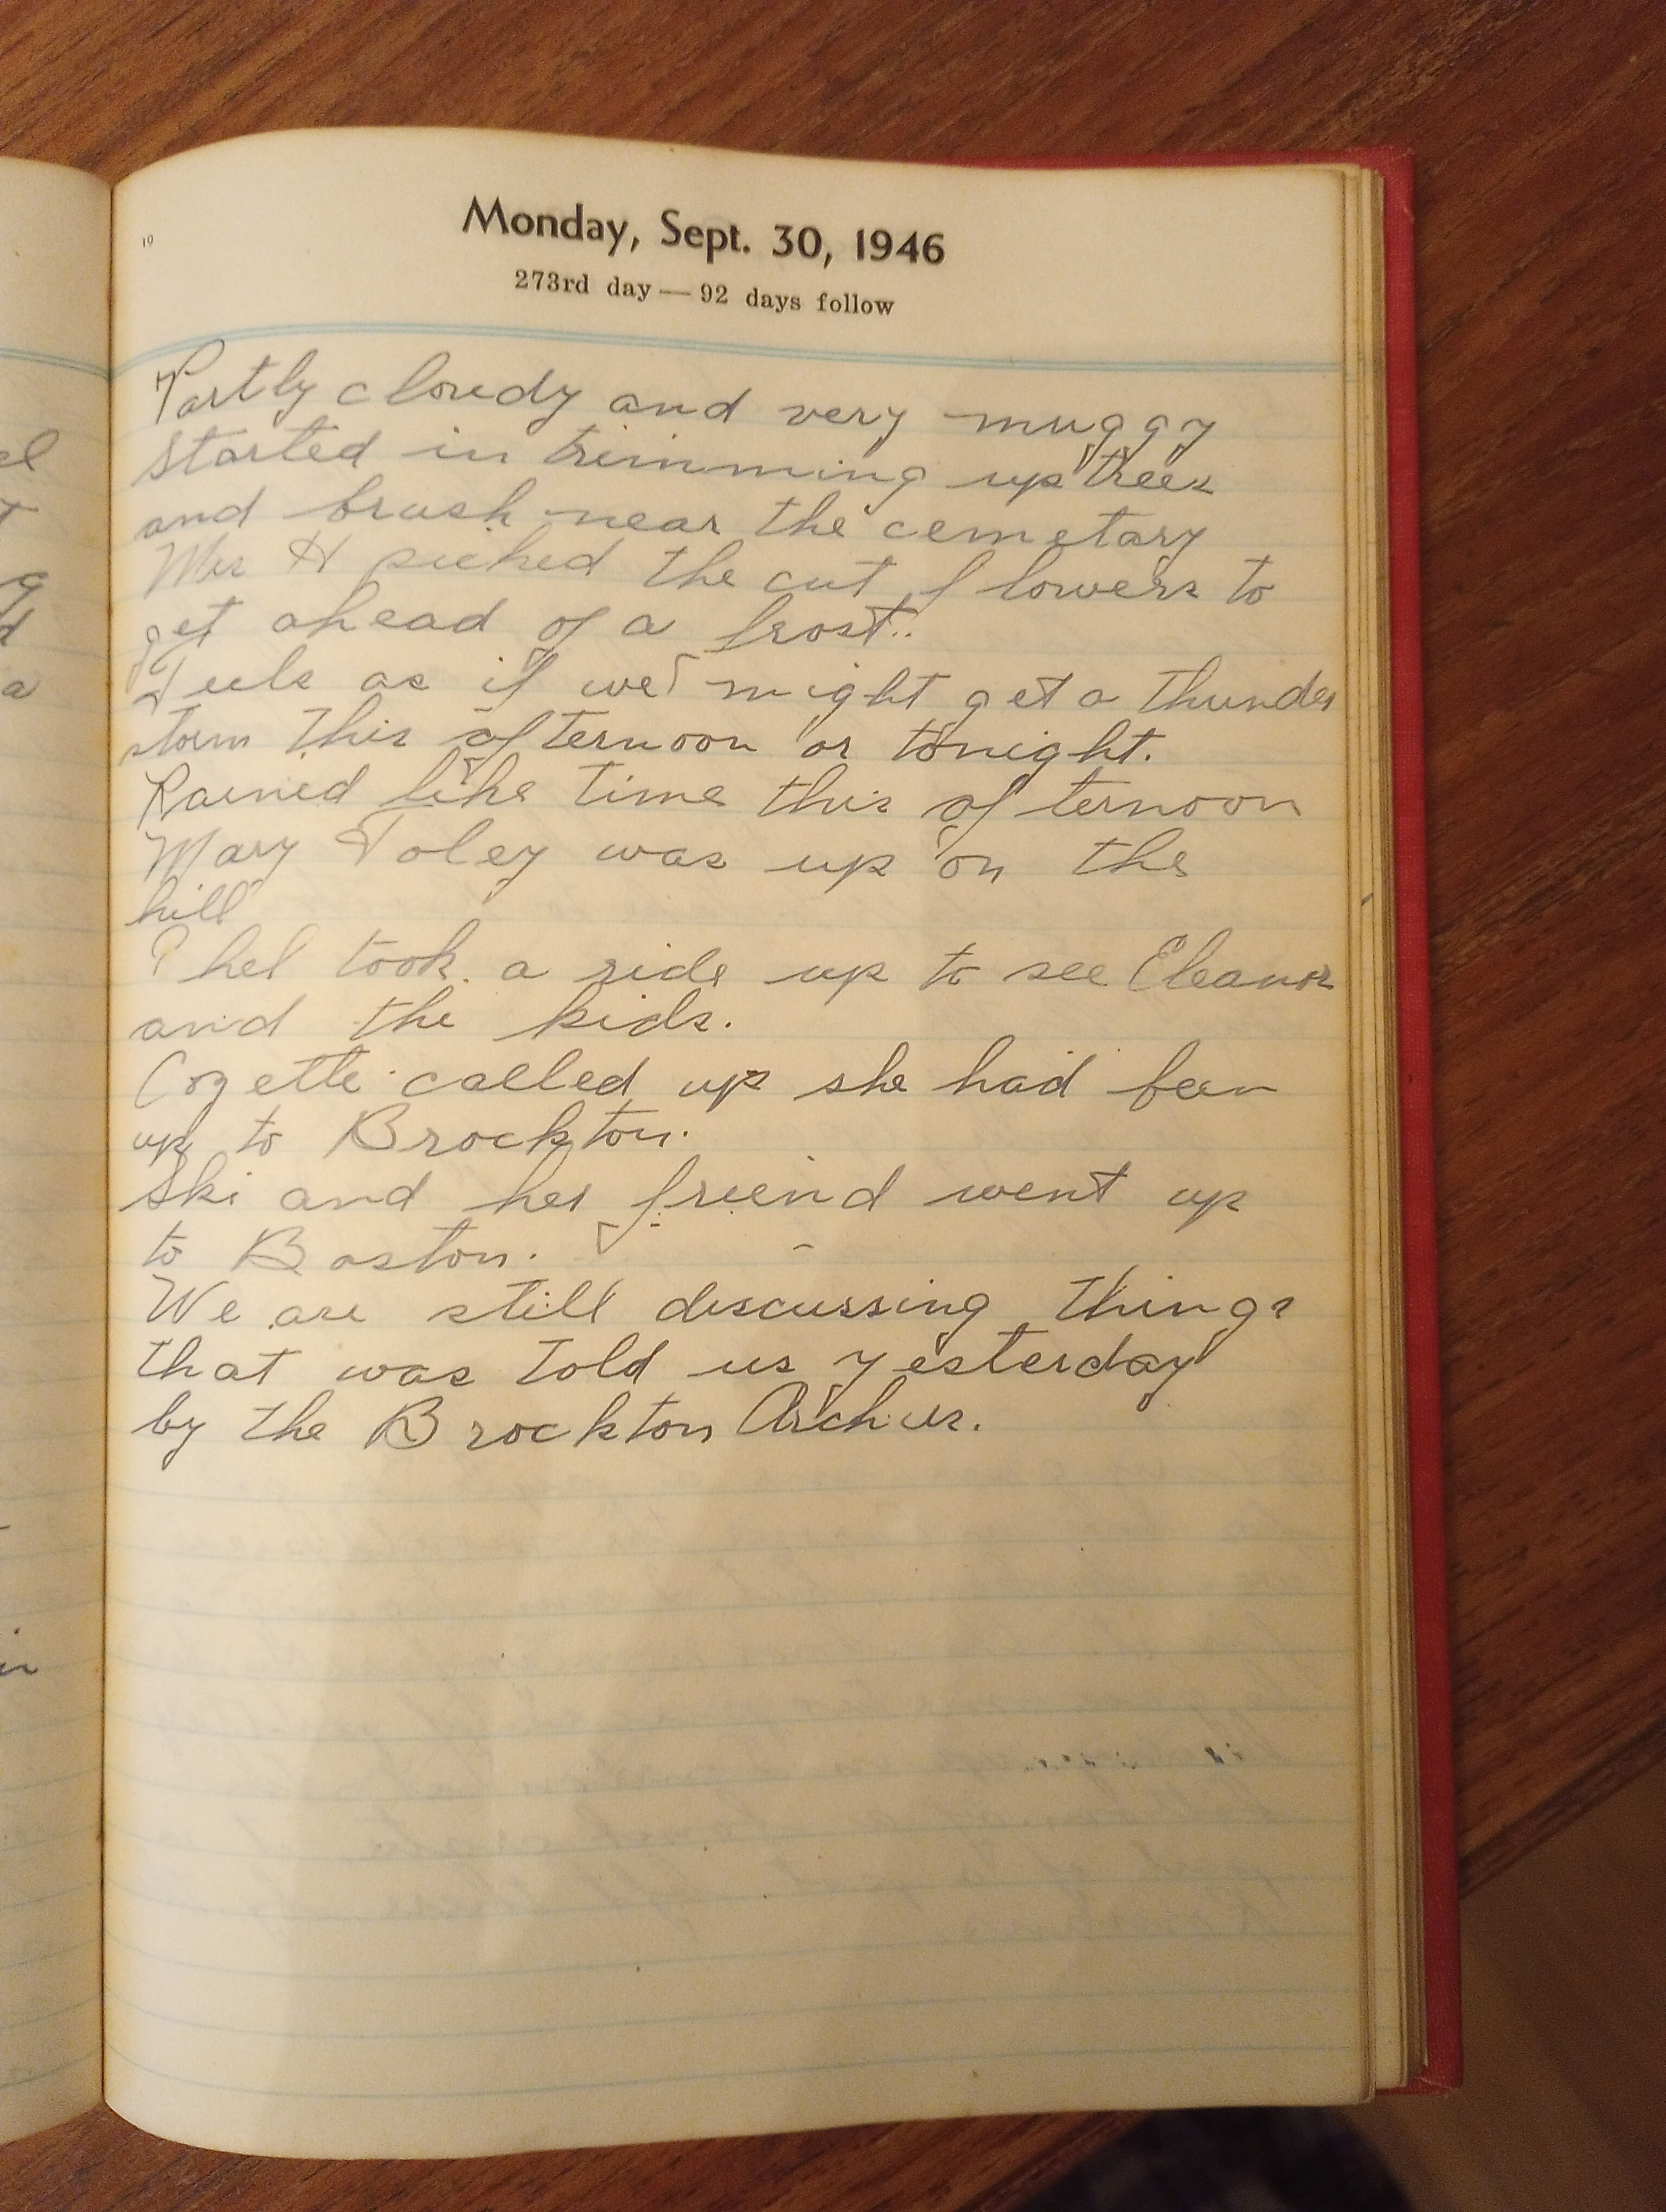 19
Monday, Sept. 30, 1946
273rd day — 92 days follow
Partly cloudy and very muggy
started in trimming up trees
and brush near the cemetary
Mrs H picked the cut flowers to
get ahead of a frost.
Feels as if we might get a thunder
storm this afternoon or tonight.
Rained like time this afternoon
Mary Foley was up on the
hill
Phel took a ride up to see Eleanor
and the kids.
Cozette called up she had been
up to Brockton.
Ski and her friend went up
to Boston.
We are still discussing things
that was told us yesterday
by the Brockton